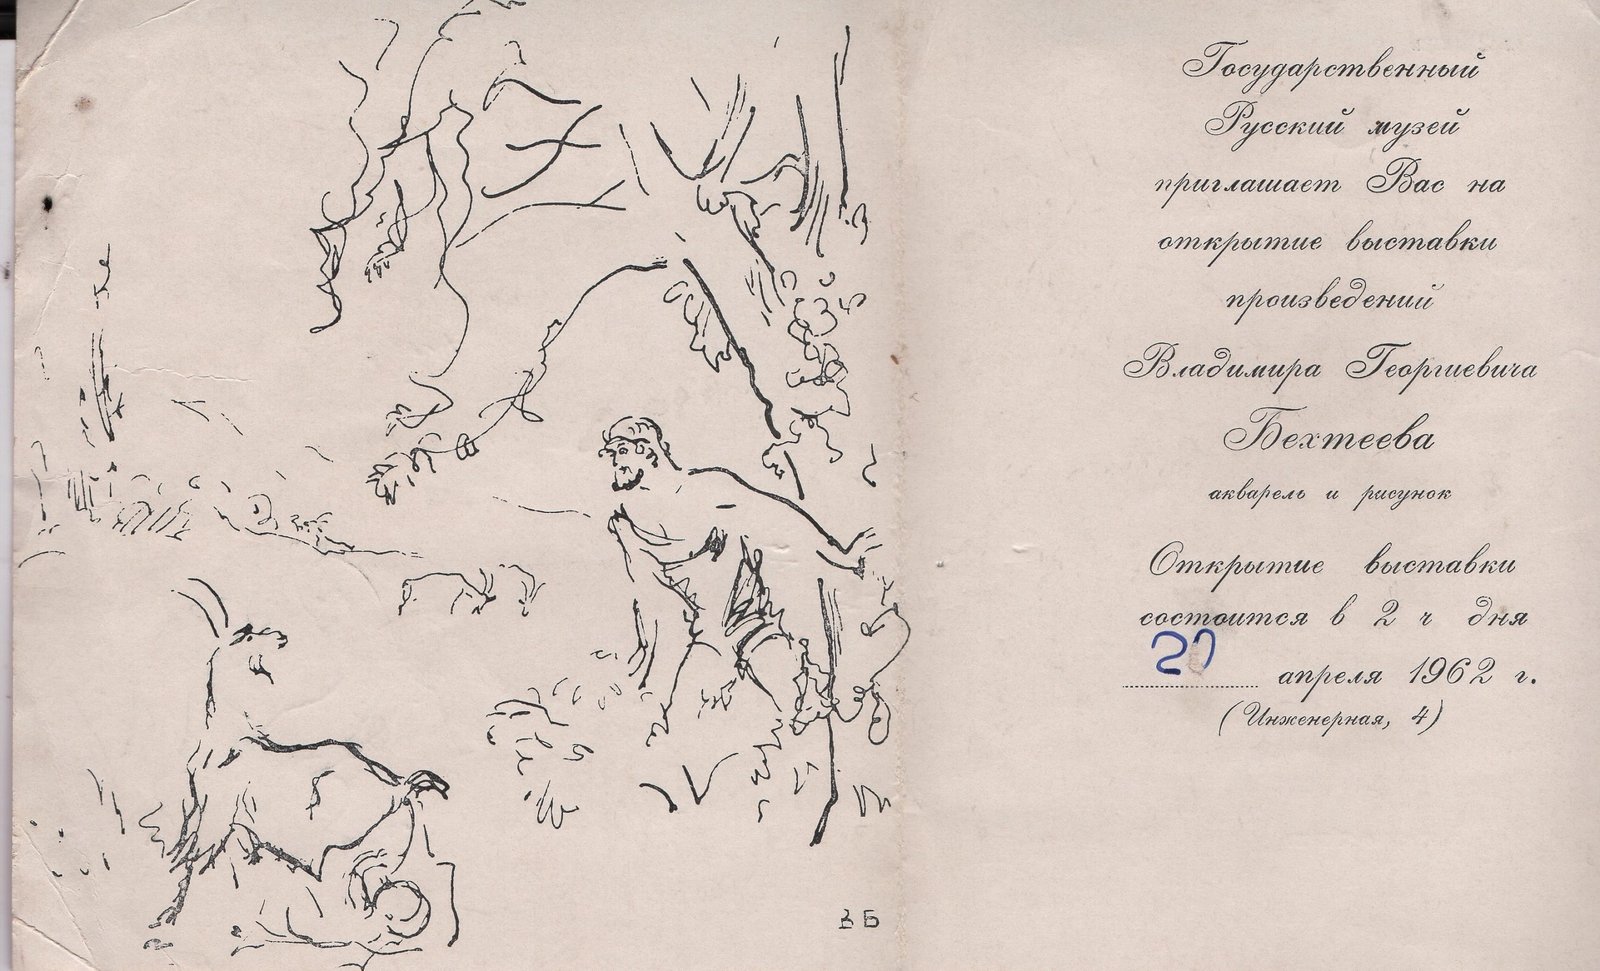 Государственный
Русский музей
приглашает Вас на
открытие выставки
произведений
Владимира Георгиевича
Бехтеева
акварель и рисунок
Открытие выставки
состоится в 2 ч дня
20 апреля 1962 г.
(Инженерная, 4)
В Б